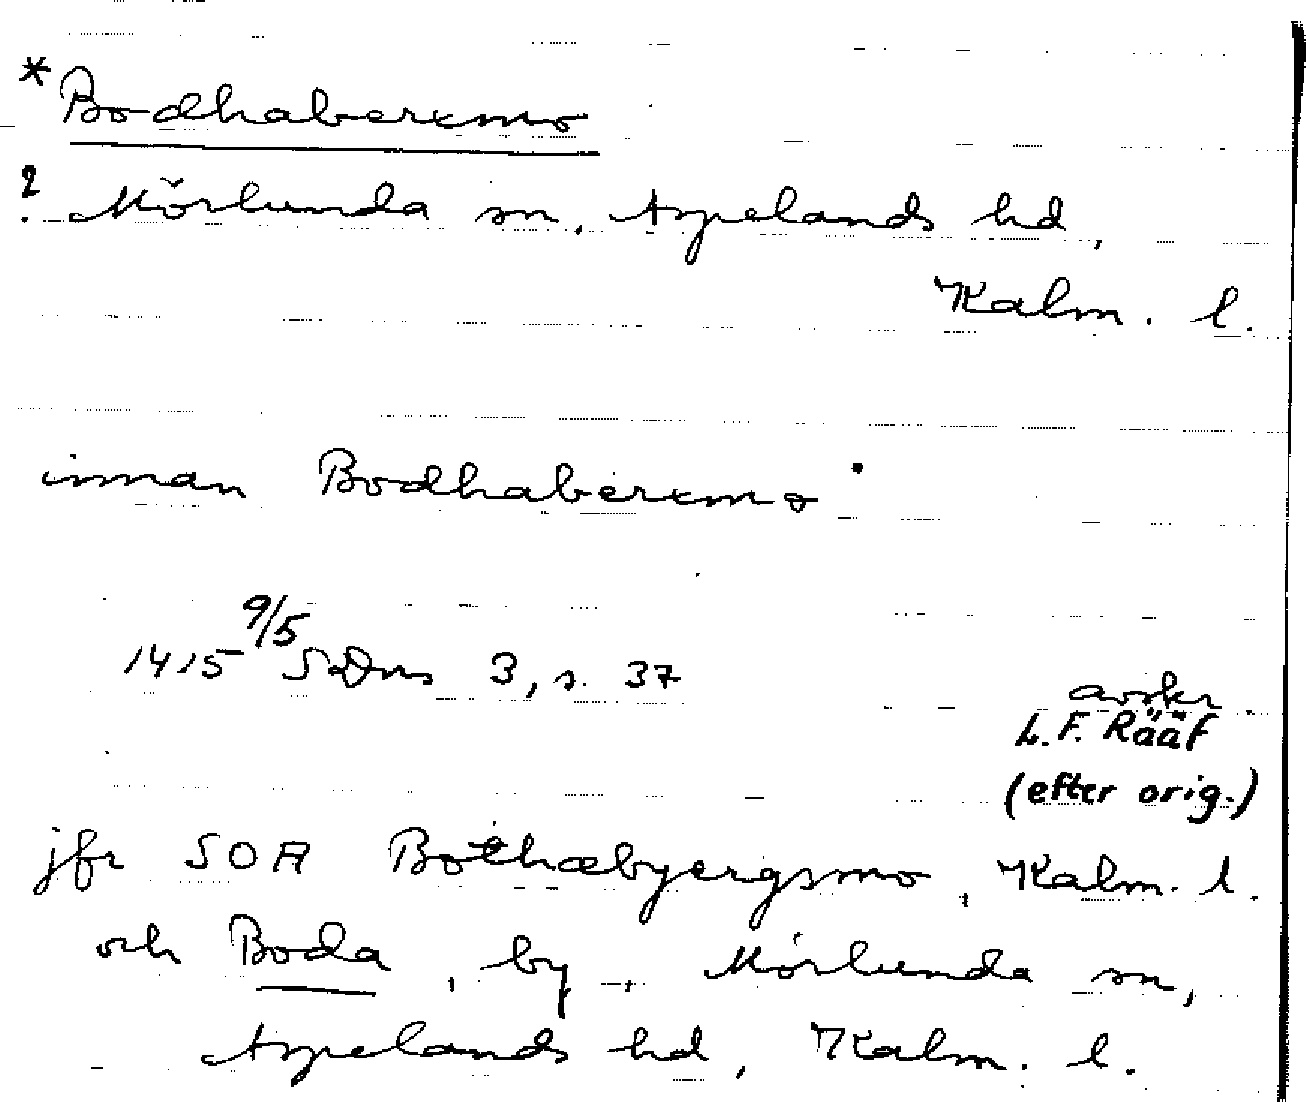 *Bodhaberxmo
? Mörlunda sn, Aspelands hd,
Kalm. l.
innan Bodhaberxmo
1415 9/5 SDns 3, s. 37
avskr.
L.F. Rääf
(efter orig.)
jfr SOA Bothæbyergsmo, Kalm. l.
och Boda, by, Mörlunda sn,
Aspelands hd, Kalm. l.